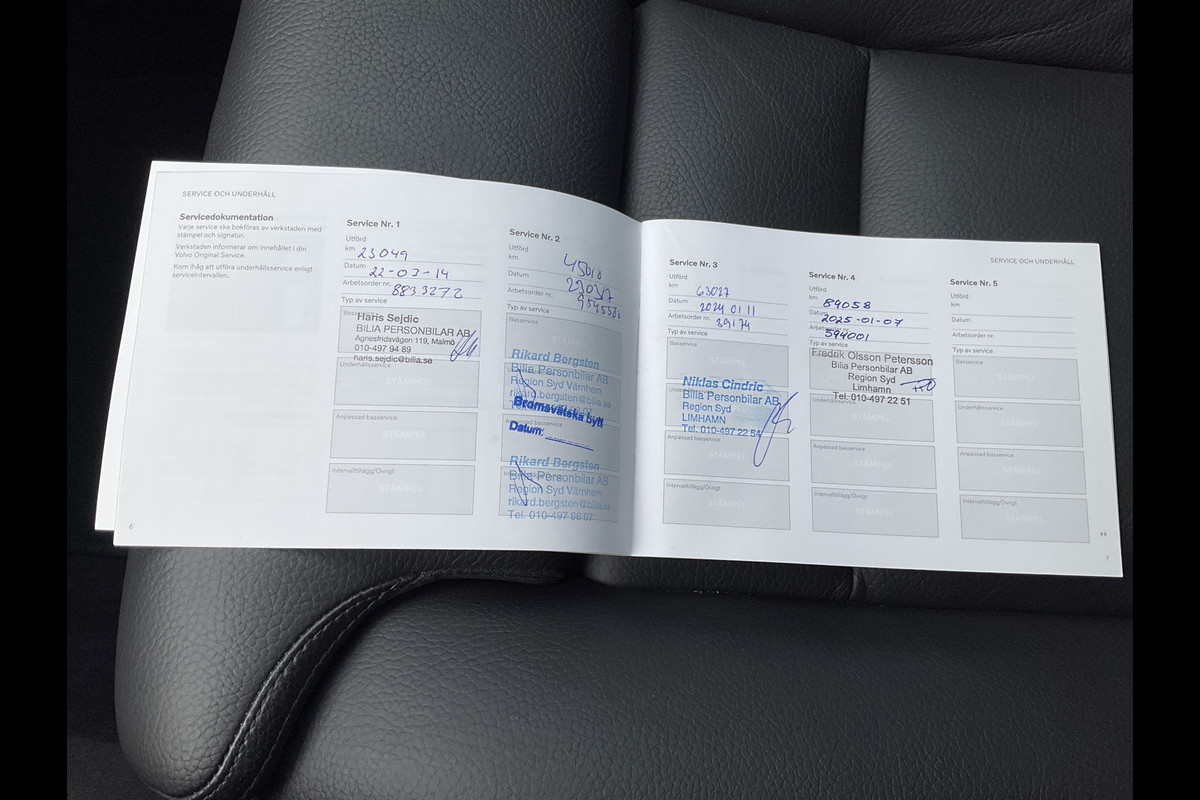 SERVICE OCH UNDERHÅLL
Servicedokumentation
Varje service ska bokföras av verkstaden med
stämpel och signatur.
Verkstaden informerar om innehållet i din
Volvo Original Service.
Kom ihåg att utföra underhållsservice enligt
serviceintervallen.
6
Service Nr. 1
Utförd
km 23049
Datum 22-03-14
Arbetsorder nr. 8833272
Typ av service
Häris Sejdic
BILIA PERSONBILAR AB
Agnesfridsvägen 119, Malmö
010-497 94 89
haris.sejdic@bilia.se
Underhållsservice
STÄMPEL
Anpassad basservice
STÄMPEL
Intervalltillägg/Övrigt
STÄMPEL
Service Nr. 2
Utförd
km 45010
Datum
Arbetsorder nr.
Typ av service
Basservice
STÄMPEL
Rikard Bergsten
Bilia Personbilar AB
Region Syd Värnhem
rikard.bergsten@bilia.se
Bromsvätska bytt
Datum:
Rikard Bergsten
Bilia Personbilar AB
Region Syd Värnhem
rikard.bergsten@bilia.se
Tel. 010-497 96 07
Service Nr. 3
Utförd
km 63027
Datum 2024 01 11
Arbetsorder nr. 39174
Typ av service
Basservice
STÄMPEL
Niklas Cindric
Bilia Personbilar AB
Region Syd
LIMHAMN
Tel. 010-497 22 54
Anpassad basservice
STÄMPEL
Intervalltillägg/Övrigt
STÄMPEL
Service Nr. 4
Utförd
km 89058
Datum 2025-01-07
Arbetsorder nr. 594001
Typ av service
Fredrik Olsson Petersson
Bilia Personbilar AB
Region Syd
Limhamn
Tel. 010-497 22 51
Underhållsservice
STÄMPEL
Anpassad basservice
STÄMPEL
Intervalltillägg/Övrigt
STÄMPEL
SERVICE OCH UNDERHÅLL
Service Nr. 5
Utförd
km
Datum
Arbetsorder nr.
Typ av service
Basservice
STÄMPEL
Underhållsservice
STÄMPEL
Anpassad basservice
STÄMPEL
Intervalltillägg/Övrigt
STÄMPEL
7